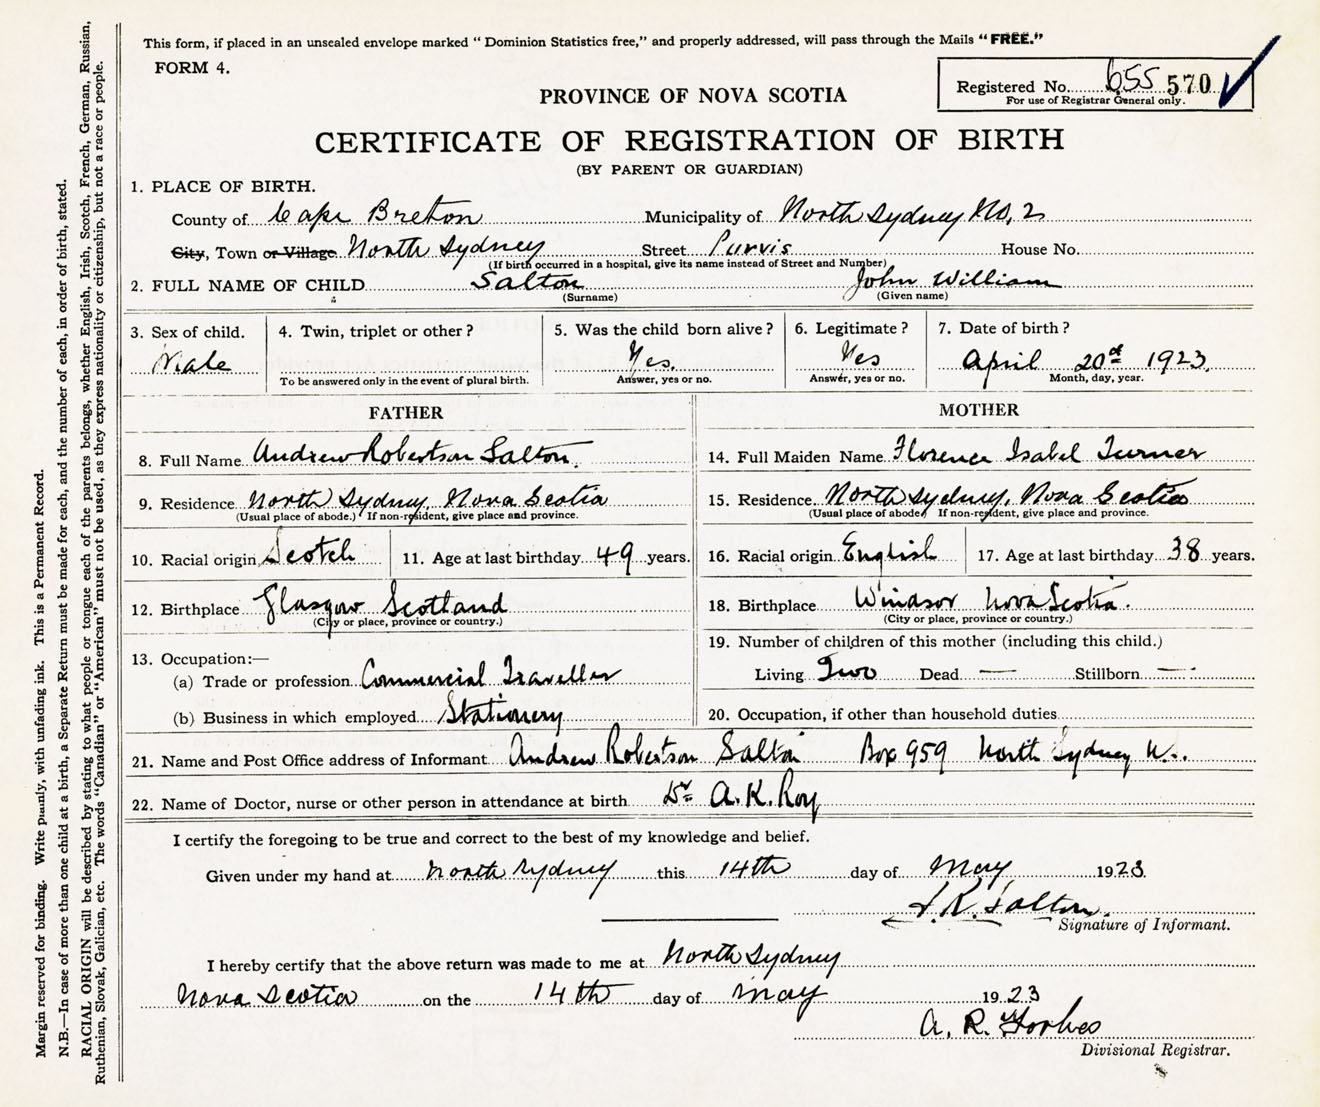 This form, if placed in an unsealed envelope marked “ Dominion Statistics free,” and properly addressed, will pass through the Mails “ FREE.”
FORM 4.
Registered No. 655 570
For use of Registrar General only.
PROVINCE OF NOVA SCOTIA
CERTIFICATE OF REGISTRATION OF BIRTH
(BY PARENT OR GUARDIAN)
1. PLACE OF BIRTH.
County of Cape Breton Municipality of North Sydney No, 2
City, Town or Village North Sydney Street Purvis House No.
(If birth occurred in a hospital, give its name instead of Street and Number)
2. FULL NAME OF CHILD Salton John William
(Surname) (Given name)
3. Sex of child. 4. Twin, triplet or other ? 5. Was the child born alive ? 6. Legitimate ? 7. Date of birth ?
Male Yes. Yes April 20th 1923.
To be answered only in the event of plural birth. Answer, yes or no. Answer, yes or no. Month, day, year.
FATHER MOTHER
8. Full Name Andrew Robertson Salton. 14. Full Maiden Name Florence Isabel Turner
9. Residence North Sydney, Nova Scotia 15. Residence North Sydney, Nova Scotia
(Usual place of abode.) If non-resident, give place and province. (Usual place of abode) If non-resident, give place and province.
10. Racial origin Scotch 11. Age at last birthday 49 years. 16. Racial origin English 17. Age at last birthday 38 years.
12. Birthplace Glasgow Scotland 18. Birthplace Windsor Nova Scotia.
(City or place, province or country.) (City or place, province or country.)
19. Number of children of this mother (including this child.)
13. Occupation:—
(a) Trade or profession Commercial Traveller Living Two Dead — Stillborn —
(b) Business in which employed Stationery 20. Occupation, if other than household duties
21. Name and Post Office address of Informant Andrew Robertson Salton Box 959 North Sydney N..
22. Name of Doctor, nurse or other person in attendance at birth Dr A. K. Roy
I certify the foregoing to be true and correct to the best of my knowledge and belief.
Given under my hand at North Sydney this 14th day of May 1923.
Salton.
Signature of Informant.
I hereby certify that the above return was made to me at North Sydney
Nova Scotia on the 14th day of May 1923
A. R. Forbes
Divisional Registrar.
Margin reserved for binding. Write plainly, with unfading ink. This is a Permanent Record.
N.B.—In case of more than one child at a birth, a Separate Return must be made for each, and the number of each, in order of birth, stated.
RACIAL ORIGIN will be described by stating to what people or tongue each of the parents belongs, whether English, Irish, Scotch, French, German, Russian,
Ruthenian, Slovak, Galician, etc. The words “Canadian” or “American” must not be used, as they express nationality or citizenship, but not a race or people.